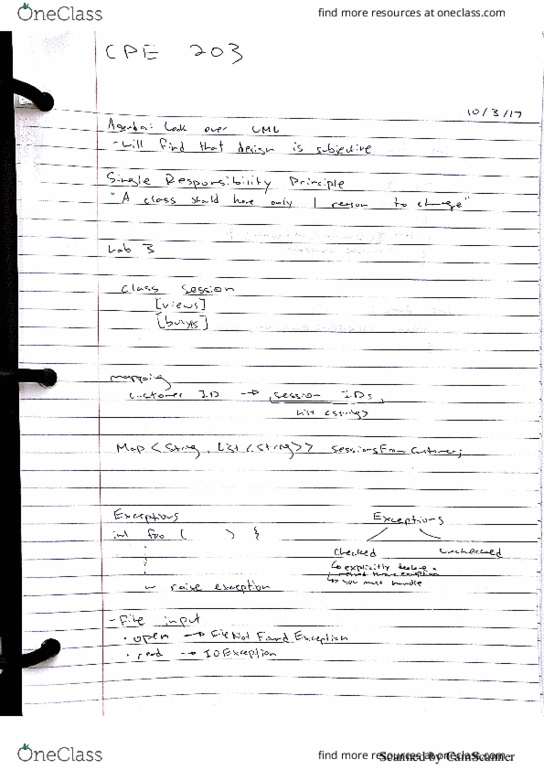 OneClass
find more resources at oneclass.com
CPE 203
10/3/17
Agenda: Look over UML
- will find that design is subjective
Single Responsibility Principle
"A class should have only 1 reason to change"
Lab 3
class session
[views]
[buys]
mapping
customer ID → session IDs,
List <string>
Map <String, List <String>> sessionsFromCustomer;
Exceptions
int foo ( ) {
raise exception
Exceptions
checked
unchecked
↳ explicitly
method throws exception
↳ you must handle
- File input
• open → FileNotFoundException
• read → IOException
OneClass
find more resources at oneclass.com
Scanned by CamScanner